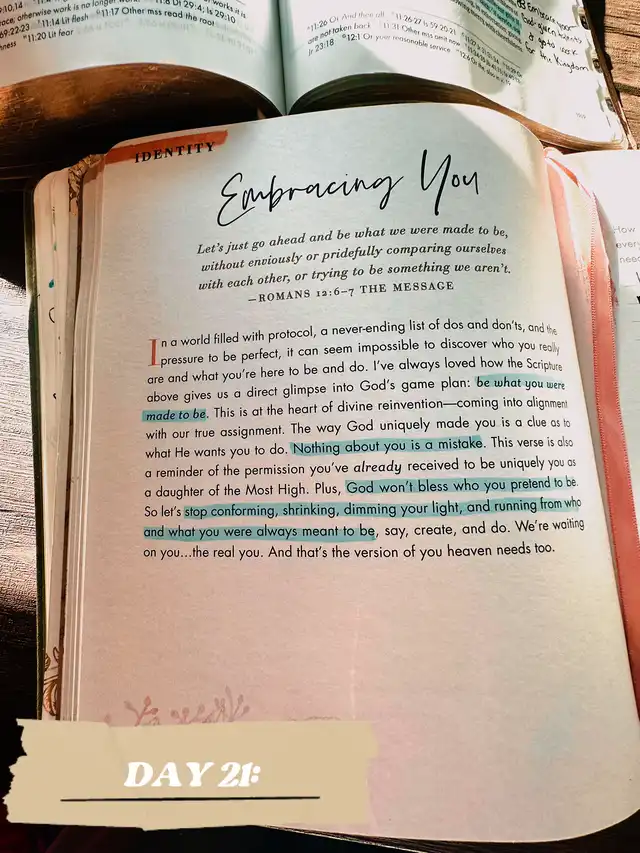 9:10,14
race; otherwise work is no longer work.
69:22-23 11:14 Lit flesh 11:17 Other mss read the root
11:20 Lit fear
11:20 Or And then all 11:26-27 Is 59:20-21
are not taken back 11:31 Other mss omit now
Jr 23:18 12:1 Or your reasonable service
Embrace your
God given talents
& go to work
for the Kingdom
IDENTITY
Embracing You
Let's just go ahead and be what we were made to be,
without enviously or pridefully comparing ourselves
with each other, or trying to be something we aren't.
—ROMANS 12:6–7 THE MESSAGE
In a world filled with protocol, a never-ending list of dos and don'ts, and the
pressure to be perfect, it can seem impossible to discover who you really
are and what you're here to be and do. I've always loved how the Scripture
above gives us a direct glimpse into God's game plan: be what you were
made to be. This is at the heart of divine reinvention—coming into alignment
with our true assignment. The way God uniquely made you is a clue as to
what He wants you to do. Nothing about you is a mistake. This verse is also
a reminder of the permission you've already received to be uniquely you as
a daughter of the Most High. Plus, God won't bless who you pretend to be.
So let's stop conforming, shrinking, dimming your light, and running from who
and what you were always meant to be, say, create, and do. We're waiting
on you...the real you. And that's the version of you heaven needs too.
How
every
need
DAY 21: